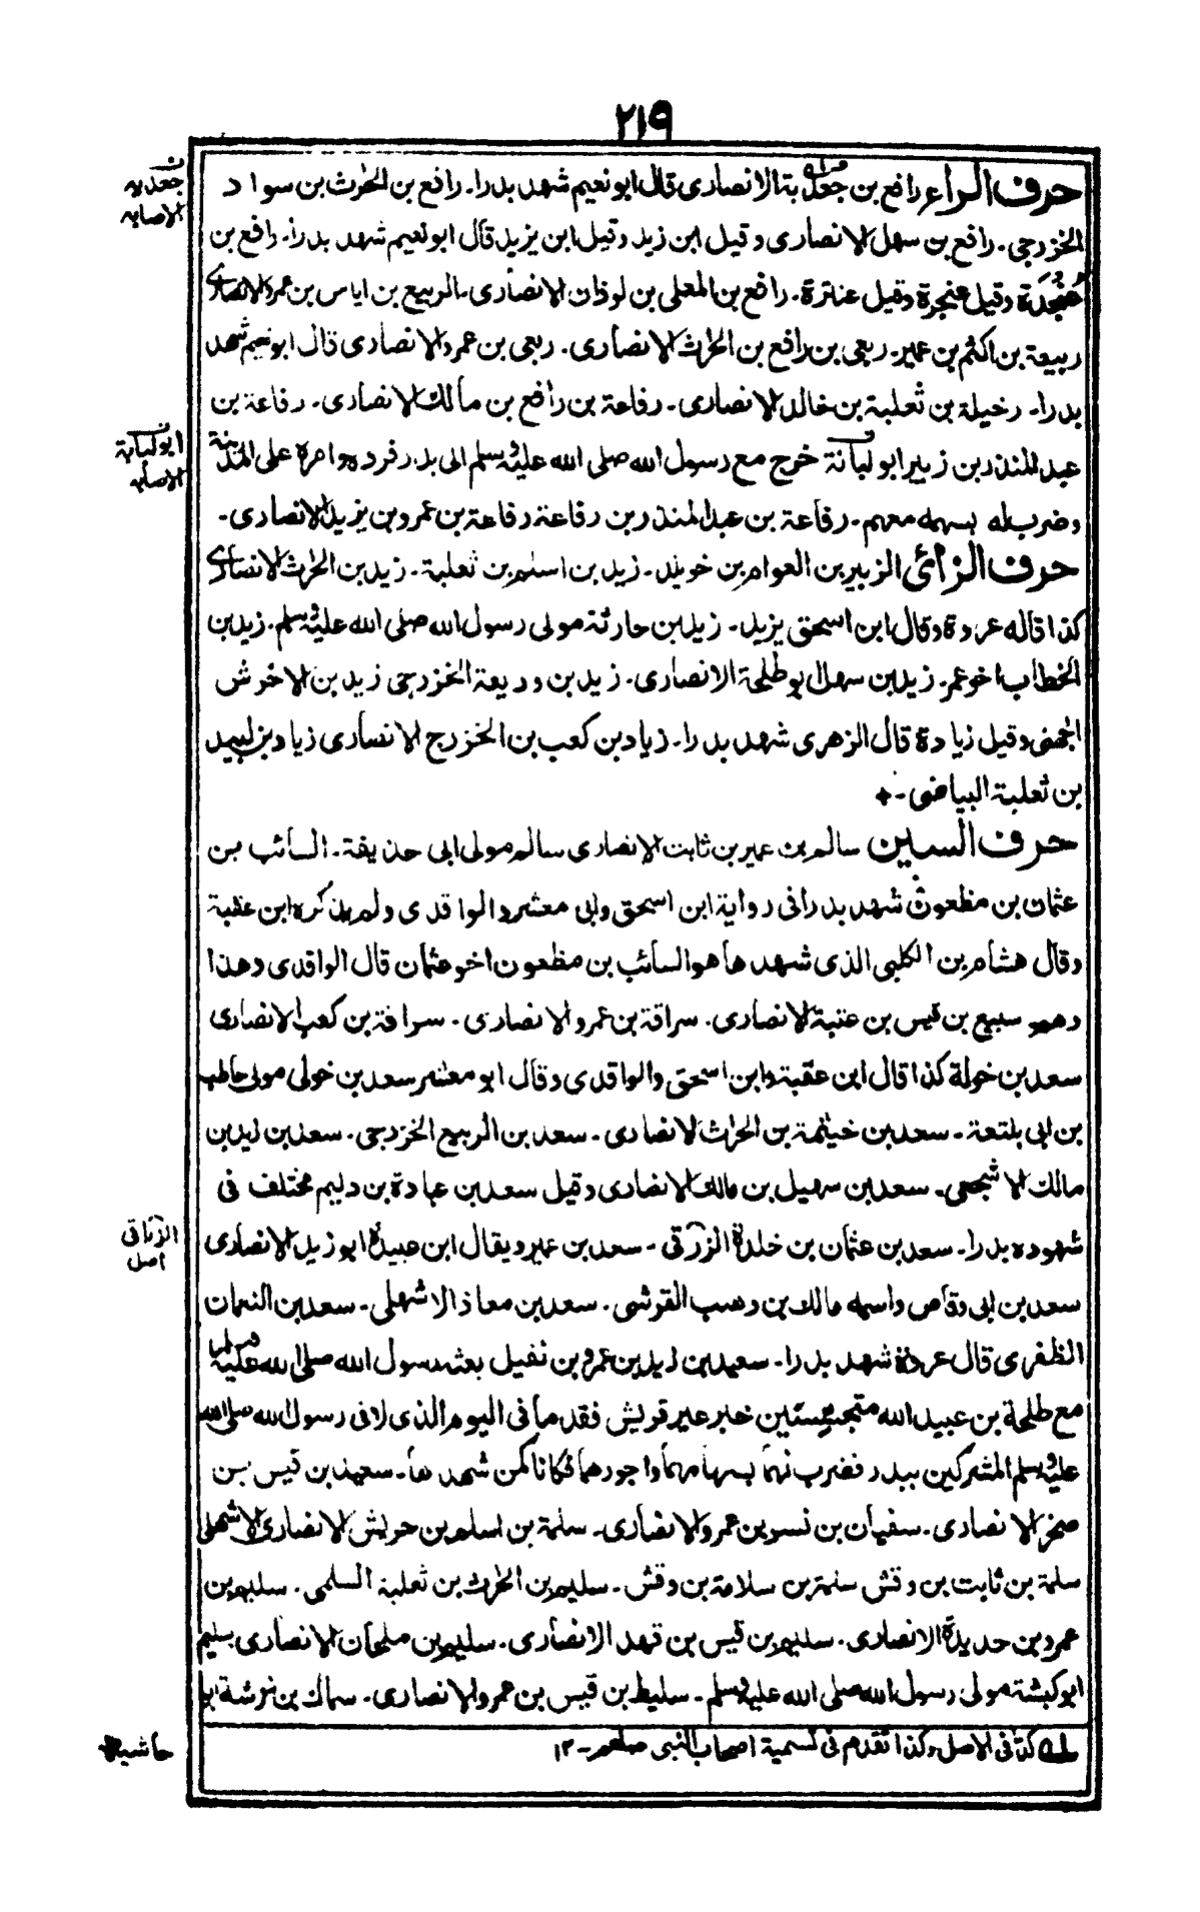 ٢١٩
حرف الراء رافع بن جعدبة الانصارى قال ابو نعيم شهد بدرا۔ رافع بن الحٰرث بن سواد
ن جعدبه الاصابه
الخزرجى۔ رافع بن سهل الانصارى وقيل ابن زيد وقيل ابن يزيد قال ابو نعيم شهد بدرا۔ رافع بن
عنجدة وقيل عنجرة وقيل عنترة۔ رافع بن المعلى بن لوذان الانصارى۔ الربيع بن اياس بن عمرو الانصارى
ربيعة بن اكثم بن عمير۔ ربعى بن رافع بن الحٰرث الانصارى۔ ربعى بن عمرو الانصارى قال ابو نعيم شهد
بدرا۔ رخيلة بن ثعلبة بن خالد الانصارى۔ رفاعة بن رافع بن مالك الانصارى۔ رفاعة بن
عبد المنذر بن زبير ابو لبانة خرج مع رسول الله صلى الله عليه وسلم الى بدر فرده وامره على المدينة
ن ابو لبابة الاصابه
وضرب له بسهمه معهم۔ رفاعة بن عبد المنذر بن رفاعة رفاعة بن عمرو بن يزيد الانصارى۔
حرف الزائ الزبير بن العوام بن خويلد۔ زيد بن اسلم بن ثعلبة۔ زيد بن الحٰرث الانصارى
كذا قاله عروة وقال ابن اسحق يزيد۔ زيد بن حارثة مولى رسول الله صلى الله عليه وسلم۔ زيد بن
الخطاب اخو عمر۔ زيد بن سهل ابو طلحة الانصارى۔ زيد بن وديعة الخزرجى زيد بن الاخوش
الجهنى وقيل زيادة قال الزهرى شهد بدرا۔ زياد بن كعب بن الخزرج الانصارى زياد بن لبيد
بن ثعلبة البياضى۔
حرف السين سالم بن عمير بن ثابت الانصارى سالم مولى ابى حذيفة۔ السائب بن
عثمان بن مظعون شهد بدرا فى رواية ابن اسحق وابى معشر والواقدى ولم يذكره ابن عقبة
وقال هشام بن الكلبى الذى شهدها هو السائب بن مظعون اخو عثمان قال الواقدى وهذا
وهم سبيع بن قيس بن عتبة الانصارى۔ سراقة بن عمرو الانصارى۔ سراقة بن كعب الانصارى
سعد بن خولة كذا قال ابن عقبة وابن اسحق والواقدى وقال ابو معشر سعد بن خولى مولى حاطب
بن ابى بلتعة۔ سعد بن خيثمة بن الحٰرث الانصارى۔ سعد بن الربيع الخزرجى۔ سعد بن زيد بن
مالك الاشهلى۔ سعد بن سهيل بن مالك الانصارى وقيل سعد بن عبادة بن دليم مختلف فى
شهوده بدرا۔ سعد بن عثمان بن خلدة الزرقى۔ سعد بن عمير ويقال ابن عبيدة ابو زيد الانصارى
الزناقى اصل
سعد بن ابى وقاص واسمه مالك بن وهب القرشى۔ سعد بن معاذ الاشهلى۔ سعد بن النعمان
الظفرى قال عروة شهد بدرا۔ سعيد بن زيد بن عمرو بن نفيل بعثه رسول الله صلى الله عليه وسلم
مع طلحة بن عبيد الله خبر عير قريش فقدما فى اليوم الذى لاقى رسول الله صلى الله
عليه وسلم المشركين ببدر فضرب لهما بسهامهما واجورهما فكانا كمن شهدها۔ سعيد بن قيس بن
صخر الانصارى۔ سفيان بن نسر بن عمرو الانصارى۔ سلمة بن اسلم بن حريش الانصارى الاشهلى
سلمة بن ثابت بن وقش سلمة بن سلامة بن وقش۔ سليم بن الحٰرث بن ثعلبة السلمى۔ سليم بن
عمرو بن حديدة الانصارى۔ سليم بن قيس بن قهد الانصارى۔ سليم بن ملحان الانصارى سليم
ابو كبشة مولى رسول الله صلى الله عليه وسلم۔ سليط بن قيس بن عمرو الانصارى۔ سماك بن خرشة ابو
كذا فى الاصل وكذا تقدم فى تسمية اصحاب النبى صلعم۔ ١٢
حاشيه